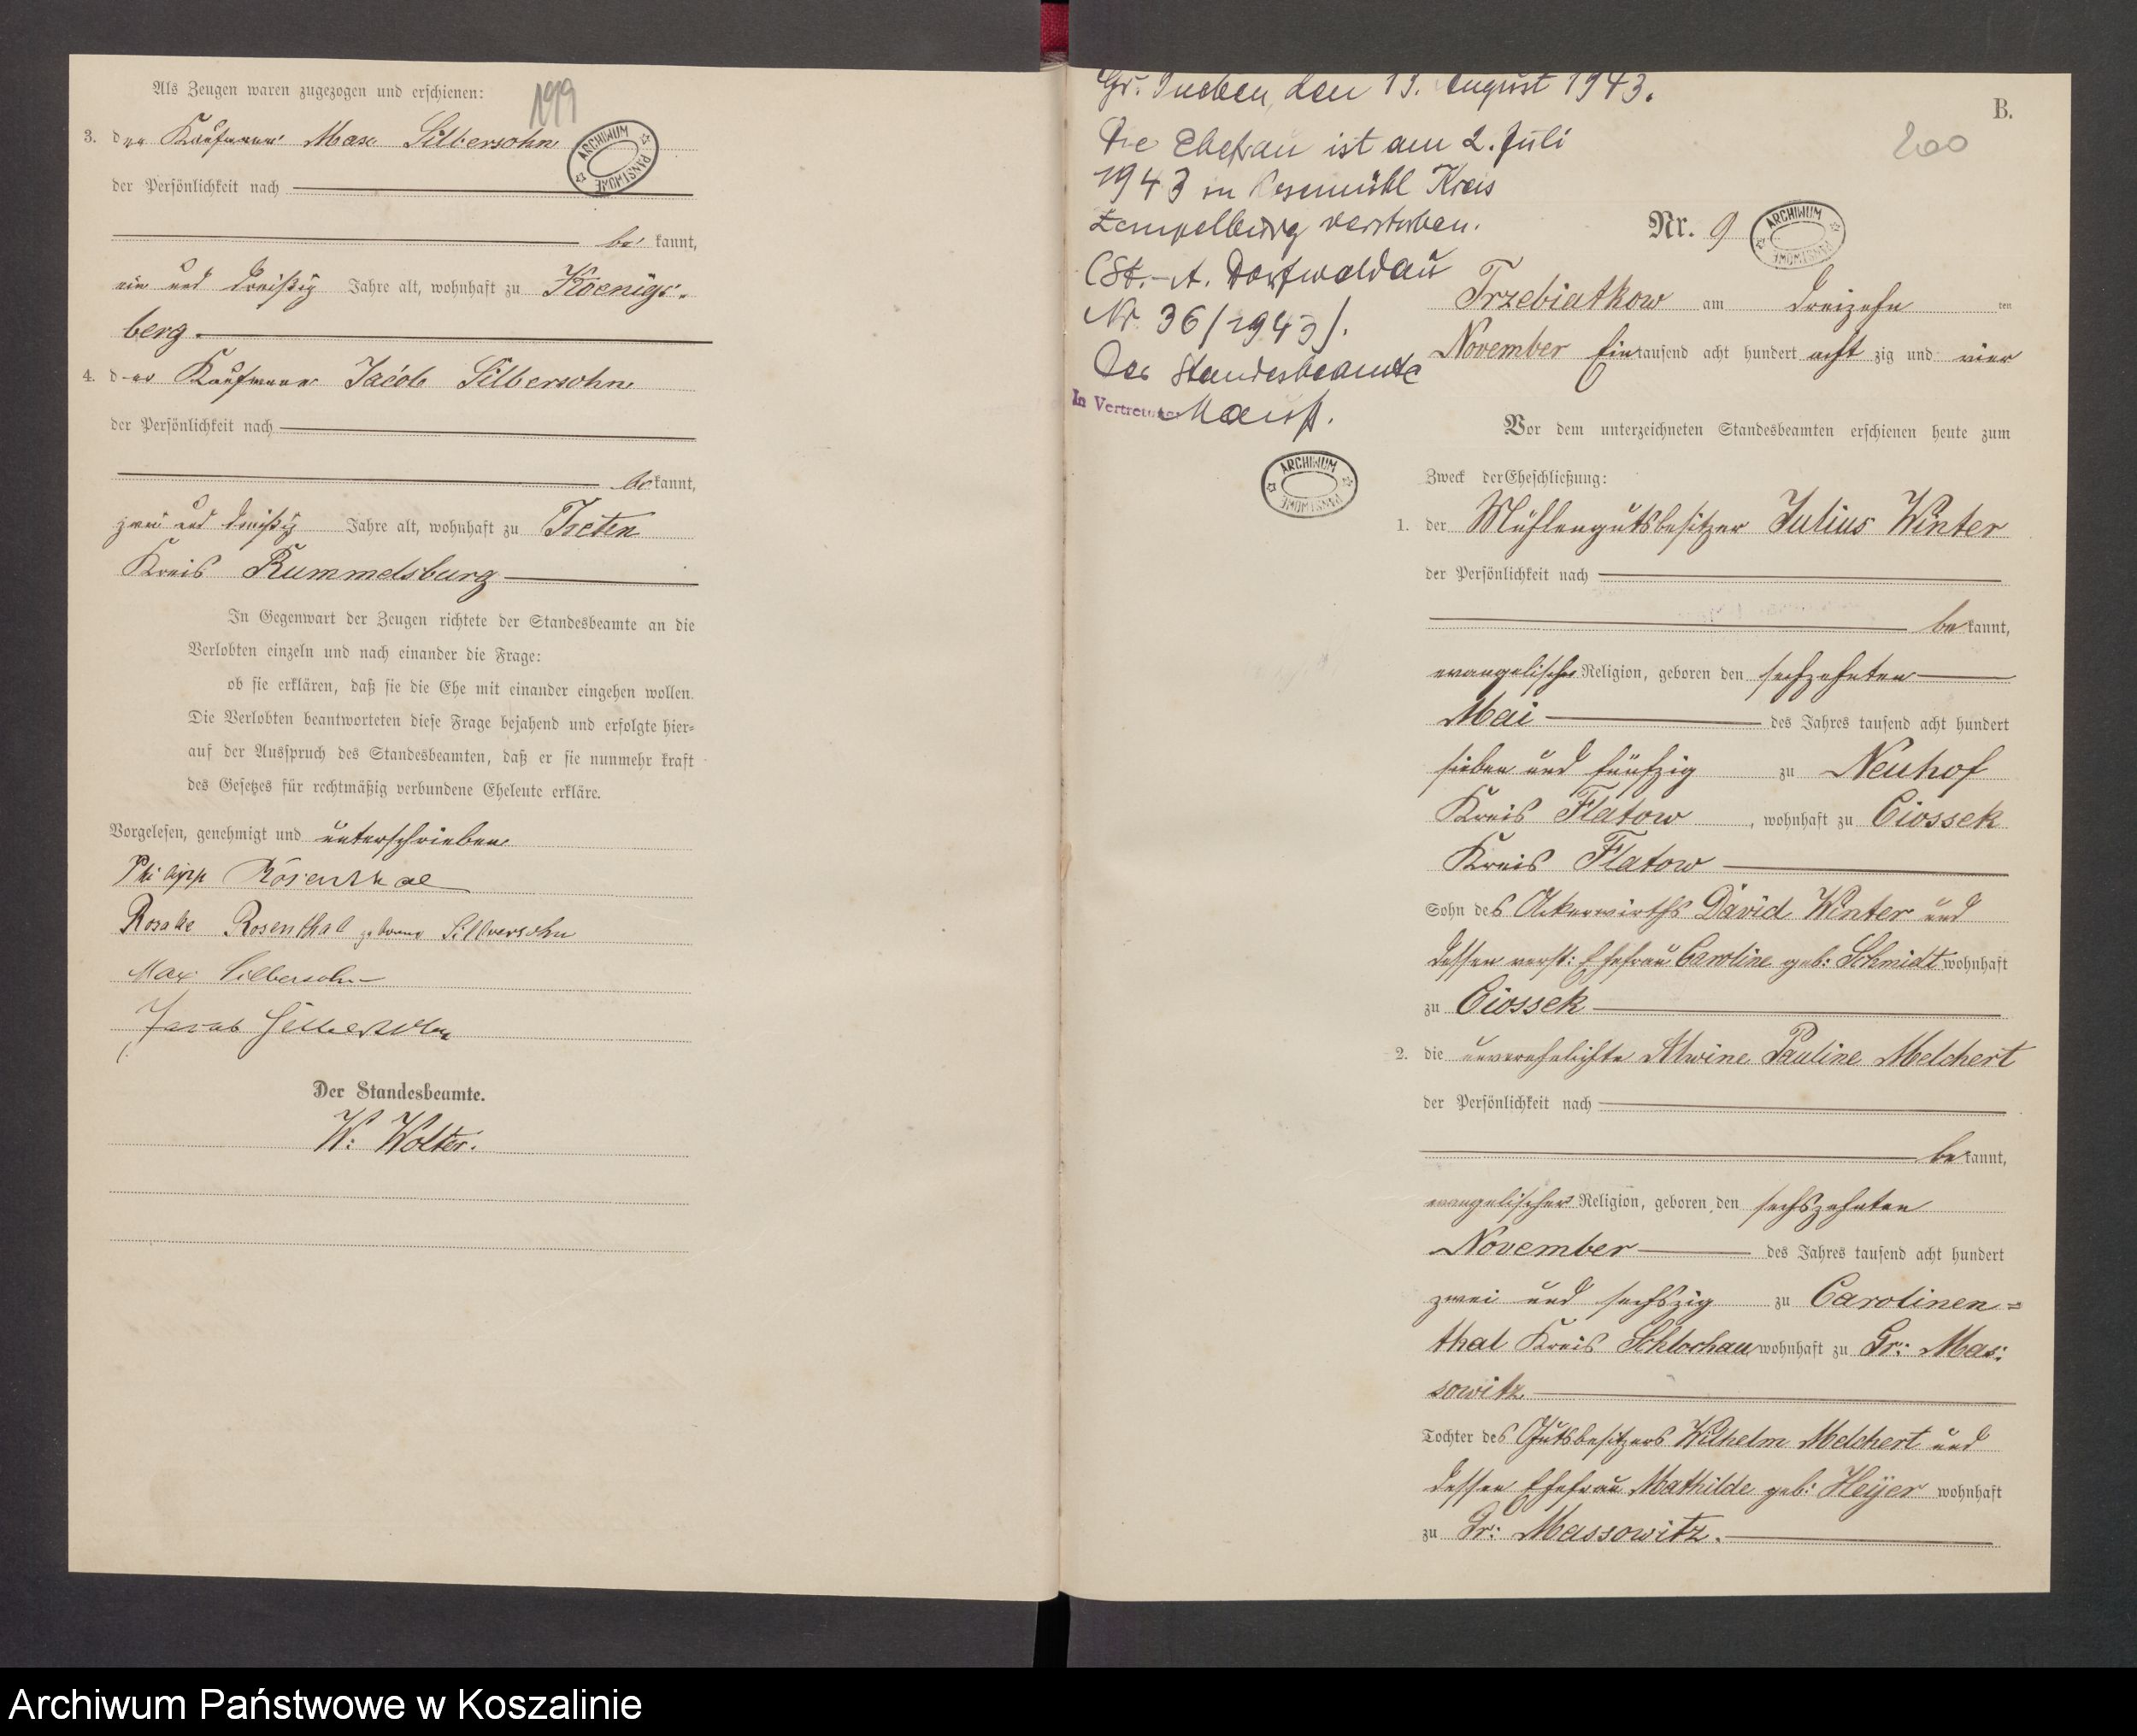 Als Zeugen waren zugezogen und erschienen:
199
3. der Kaufmann Max Silbersohn
ARCHIWUM PAŃSTWOWE
der Persönlichkeit nach
be kannt,
ein und dreißig Jahre alt, wohnhaft zu Koenigs-
berg.
4. der Kaufmann Jacob Silbersohn
der Persönlichkeit nach
be kannt,
zwei und dreißig Jahre alt, wohnhaft zu Treten
Kreis Rummelsburg
In Gegenwart der Zeugen richtete der Standesbeamte an die
Verlobten einzeln und nach einander die Frage:
ob sie erklären, daß sie die Ehe mit einander eingehen wollen.
Die Verlobten beantworteten diese Frage bejahend und erfolgte hier-
auf der Ausspruch des Standesbeamten, daß er sie nunmehr kraft
des Gesetzes für rechtmäßig verbundene Eheleute erkläre.
Vorgelesen, genehmigt und unterschrieben
Philipp Rosenthal
Rosalie Rosenthal geborene Silbersohn
Max Silbersohn
Jacob Silbersohn
Der Standesbeamte.
W: Wolter.
Gr. den 13. August 1943.
Die Ehefrau ist am 2. Juli
1943 in Kreis
Zempelburg verstorben.
(St.-A. Dorfwaldau
Nr 36/1943).
Der Standesbeamte
In Vertretung
ARCHIWUM PAŃSTWOWE
B.
200
Nr. 9
ARCHIWUM PAŃSTWOWE
Trzebiatkow am dreizehn ten
November Ein tausend acht hundert acht zig und vier
Vor dem unterzeichneten Standesbeamten erschienen heute zum
Zweck der Eheschließung:
1. der Mühlengutsbesitzer Julius Winter
der Persönlichkeit nach
be kannt,
evangelischer Religion, geboren den sechzehnten
Mai des Jahres tausend acht hundert
sieben und fünfzig zu Neuhof
Kreis Flatow, wohnhaft zu Ciossek
Kreis Flatow
Sohn des Ackerwirths David Winter und
dessen verst: Ehefrau Caroline geb: Schmidt wohnhaft
zu Ciossek
2. die unverehelichte Alwine Pauline Melchert
der Persönlichkeit nach
be kannt,
evangelischer Religion, geboren den sechszehnten
November des Jahres tausend acht hundert
zwei und sechszig zu Carolinen=
thal Kreis Schlochau, wohnhaft zu Gr: Mas:
sowitz
Tochter des Gutsbesitzers Wilhelm Melchert und
dessen Ehefrau Mathilde geb: Heÿer wohnhaft
zu Gr: Massowitz.
Archiwum Państwowe w Koszalinie